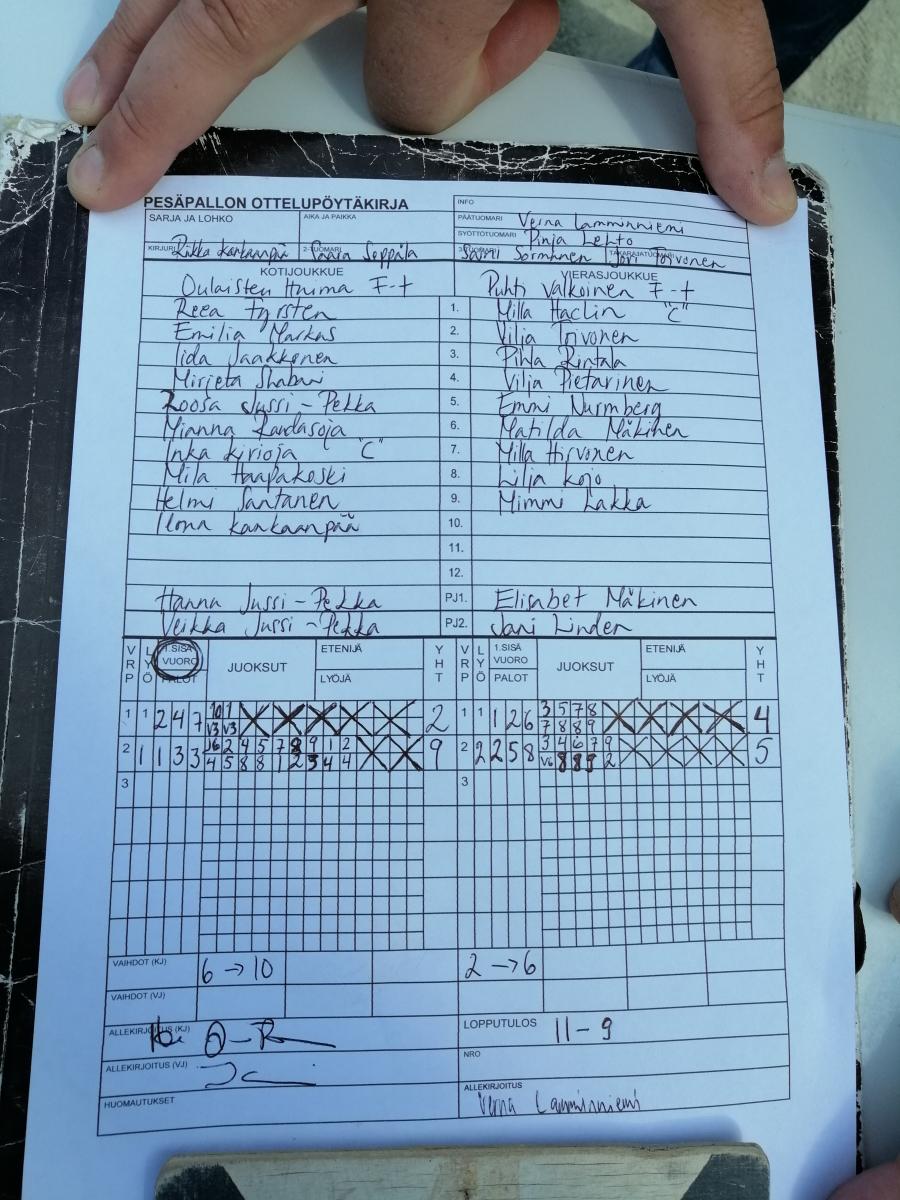 PESÄPALLON OTTELUPÖYTÄKIRJA
INFO
SARJA JA LOHKO AIKA JA PAIKKA PÄÄTUOMARI Verna Lamminniemi
SYÖTTÖTUOMARI Pinja Lehto
KIRJURI Riikka Kankaanpää 2-TUOMARI Seppälä Sormunen TAKARAJATUOMARI Jori Toivonen
KOTIJOUKKUE VIERASJOUKKUE
Oulaisten Huima F-t Puhti Valkoinen F-t
Reea Fyrsten 1. Milla Haclin "C"
Emilia Markus 2. Vilja Toivonen
Iida Jaakkonen 3. Pihla Rintala
Mirjeta Shabani 4. Vilja Pietarinen
Roosa Jussi-Pekka 5. Emmi Nurmberg
Mianna Rardasoja 6. Matilda Mäkinen
Inka Kirioja "C" 7. Milla Hirvonen
Mila Haapakoski 8. Lilja Kojo
Helmi Santanen 9. Mimmi Lakka
Ilona Kankaanpää 10.
11.
12.
Hanna Jussi-Pekka PJ1. Elisabet Mäkinen
Veikka Jussi-Pekka PJ2. Jani Linden
VRP LYÖ 1.SISÄ VUORO PALOT JUOKSUT ETENIJÄ LYÖJÄ YHT VRP LYÖ 1.SISÄ VUORO PALOT JUOKSUT ETENIJÄ LYÖJÄ YHT
1 1 2 4 7 10 1 X X X X X 2 1 1 1 2 6 3 5 7 8 X X X X 4
V3 V3 7 8 8 9
2 1 1 3 3 J6 2 4 5 7 8 9 1 2 X X 9 2 2 2 5 8 3 4 6 7 9 X X X X X 5
4 5 8 8 1 2 3 4 4 V6 8 8 9 2
3 3
VAIHDOT (KJ) 6 → 10 2 → 6
VAIHDOT (VJ)
ALLEKIRJOITUS (KJ) LOPPUTULOS 11-9
ALLEKIRJOITUS (VJ) NRO
HUOMAUTUKSET ALLEKIRJOITUS Verna Lamminniemi